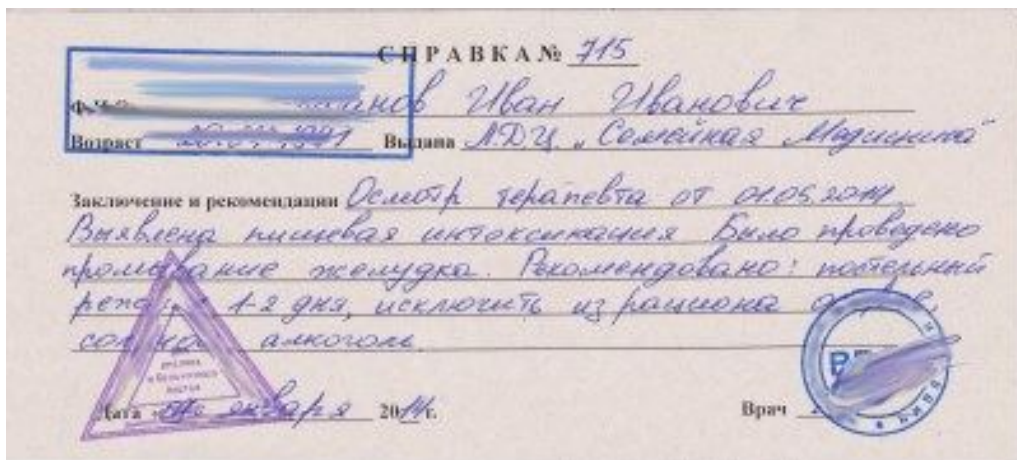 СПРАВКА № 715
Ф.И.О. Иван Иванович
Возраст Выдана ЛДЦ „Семейная Медицина"
Заключение и рекомендации Осмотр терапевта от 01.05.2014
Выявлена пищевая интоксикация Было проведено
промывание желудка. Рекомендовано: постельный
1-2 дня, исключить из рациона
алкоголь
Дата января 2014 г. Врач